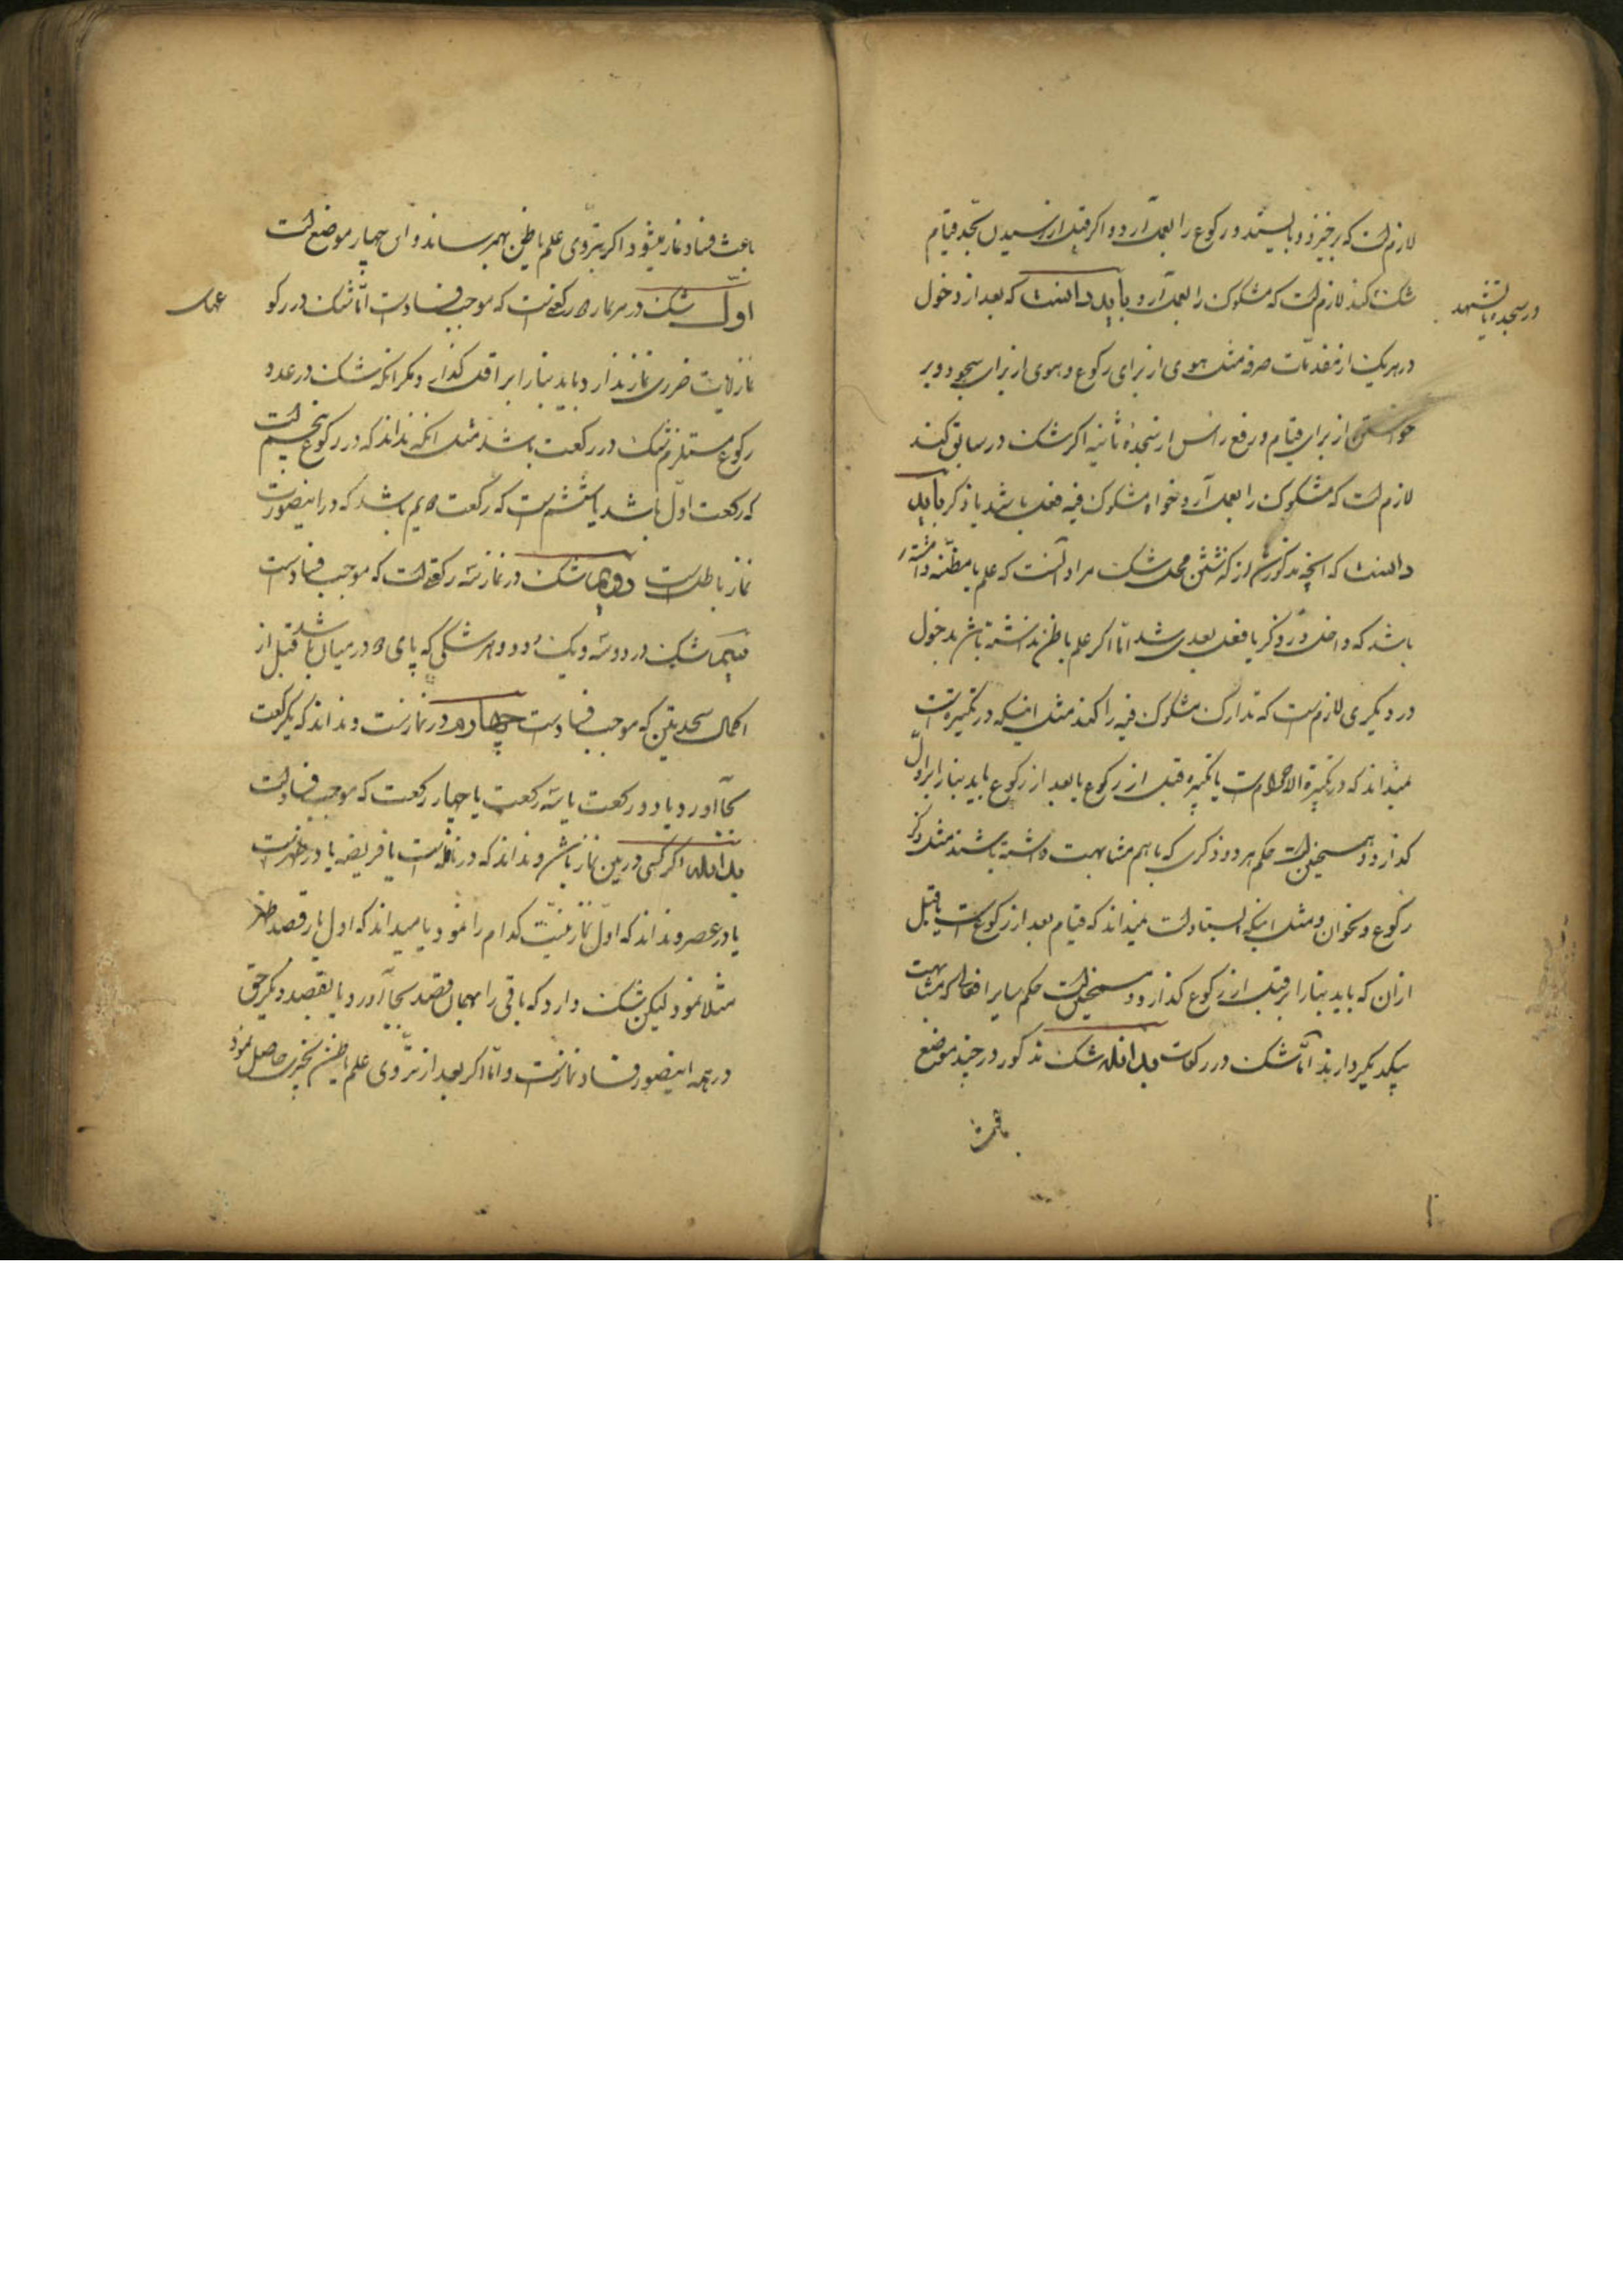 لازمست که برخیزد و بایستد و رکوع را بعمل آورد و اگر قبل از رسیدن بحد قیام
شک کند لازمست که مشکوک را بعمل آرد و باید دانست که بعد از دخول
در سجده یا تشهد
در هریک از مقدمات صرفه مثل هوی از برای رکوع و هوی از برای سجود و بر
خواستن از برای قیام و رفع رأس از سجدهٔ ثانیه اگر شک در سابق کند
لازم است که مشکوک را بعمل آرد خواه مشکوک فیه فعل باشد یا ذکر باید
دانست که انچه مذکور شد از گذشتن محل شک مراد آنست که علم یا مظنه داشته
باشد که داخل در ذکر یا فعل بعدی شد امّا اگر علم یا ظن نداشته باشد بدخول
در دیگری لازمست که تدارک مشکوک فیه را کند مثل اینکه در تکبیرتست
نمیداند که در تکبیرة الاحرامست یا تکبیره قبل از رکوع یا بعد از رکوع باید بنا را بر اوّل
گذارد و همچنین است حکم هر دو ذکری که باهم مشابهت داشته باشند مثل ذکر
رکوع و سخوان و مثل اینکه ایستاده است نمیداند که قیام بعد از رکوعست یا قبل
از آن که باید بنا را بر قبل از رکوع گذارد و همچنین است حکم سایر افعالی که مشابهت
بیکدیگر دارند امّا شک در رکعات بدانکه شک مذکور در چند موضع
باعث
باعث فساد نماز میشود اگر بتروّی علم یا ظن بهم نرساند و ان چهار موضع است
اوّل شک در هر نماز ۲ رکعتیست که موجب فسادست امّا شک در رکو
عهای
نماز آیات ضرری نماز ندارد و باید بنا را بر اقل گذارد و مگر انکه شک در عدد
رکوع مستلزم شک در رکعت باشد مثل انکه نداند که در رکوع پنجم است
که رکعت اوّل باشد یا ششم است که رکعت ۲یم باشد که در اینصورت
نماز باطلست دویم شک در نماز سه رکعتیست که موجب فسادست
سیم شک در دو و سه و یک و دو و هر شکی که پای ۲ در میان باشد قبل از
اکمال سجدیتن که موجب فسادست چهارم در نمازست و نداند که یکرکعت
بجا آورد یا دو رکعت یا سه رکعت یا چهار رکعت که موجب فسادست
بدانکه اگر کسی در بین نماز باشد و نداند که در نافله است یا فریضه یا در ظهرست
یا در عصر و نداند که اوّل نماز نیّت کدام را نمود یا میداند که اول بار قصد ظهر
مثلا نمود لیکن شک دارد که باقی را بهمان قصد بجا آورد و یا بقصد دیگر حق
در همه اینصور فساد نمازست و امّا اگر بعد از تروّی علم یا ظن بچیزی حاصل نمود